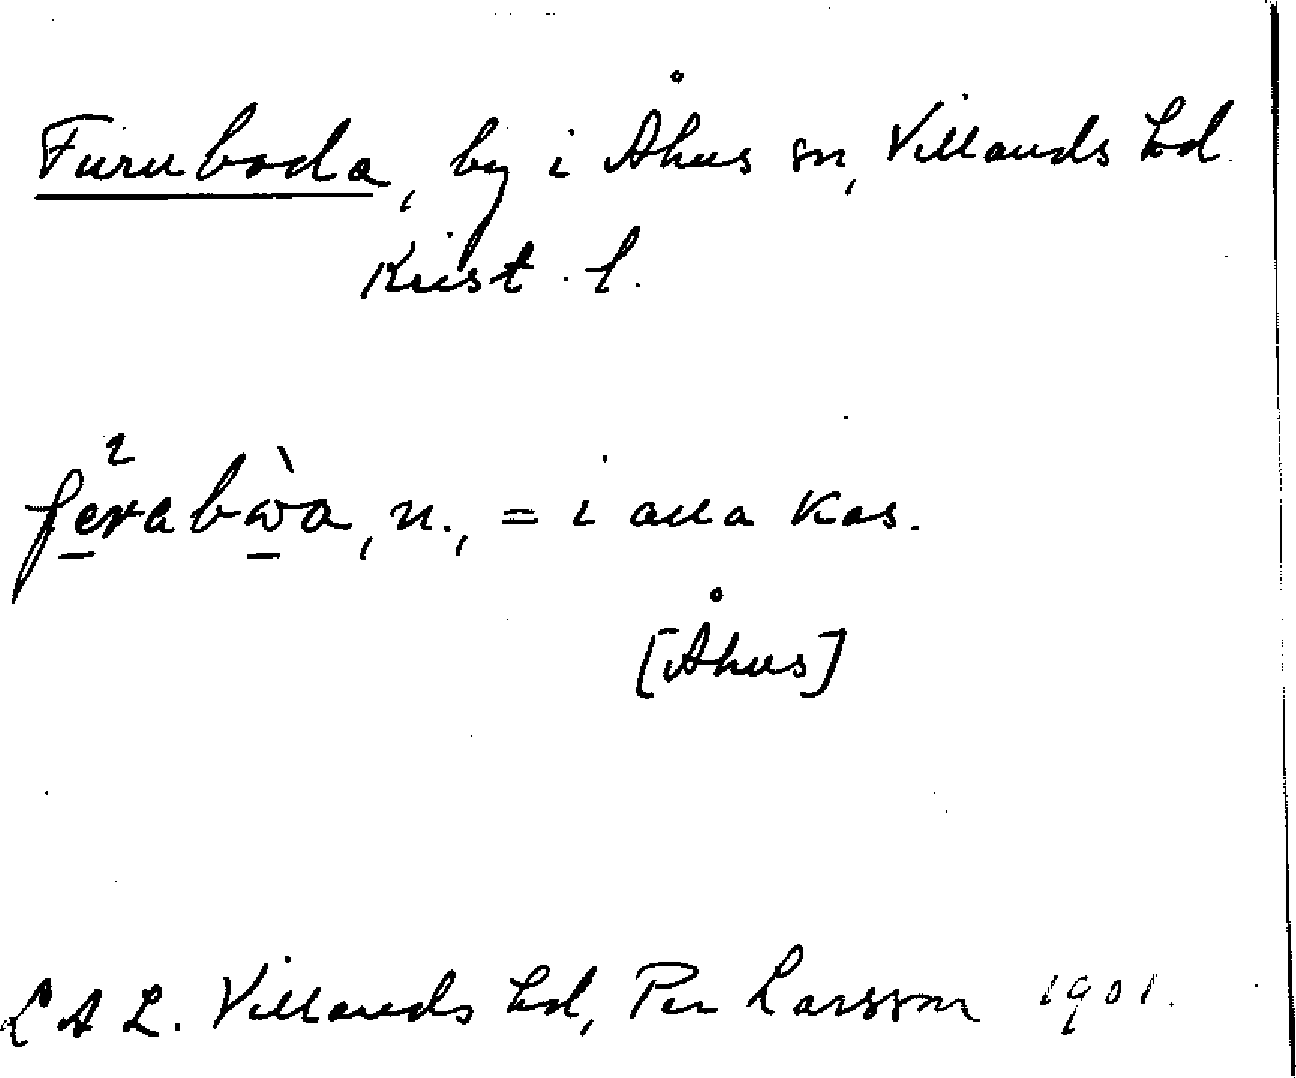 Furuboda, by i Åhus sn, Villands hd
Krist. l.
n., = i alla kas.
[Åhus]
L A L. Villands hd, Per Larsson 1901.